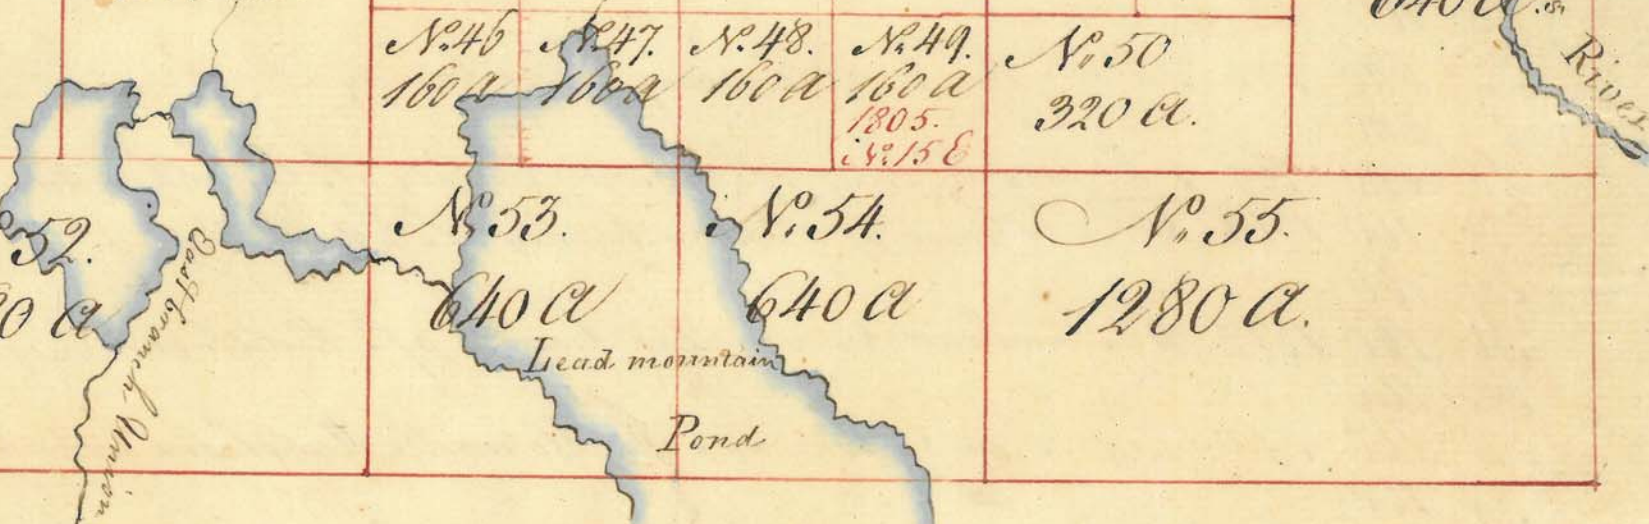 640 a.
River
No. 46
160 a
No. 47.
160 a
No. 48.
160 a
No. 49.
160 a
1805.
No. 15 E
No. 50
320 a.
52.
0 a
East branch Union
No. 53.
640 a
No. 54.
640 a
No. 55.
1280 a.
Lead mountain
Pond